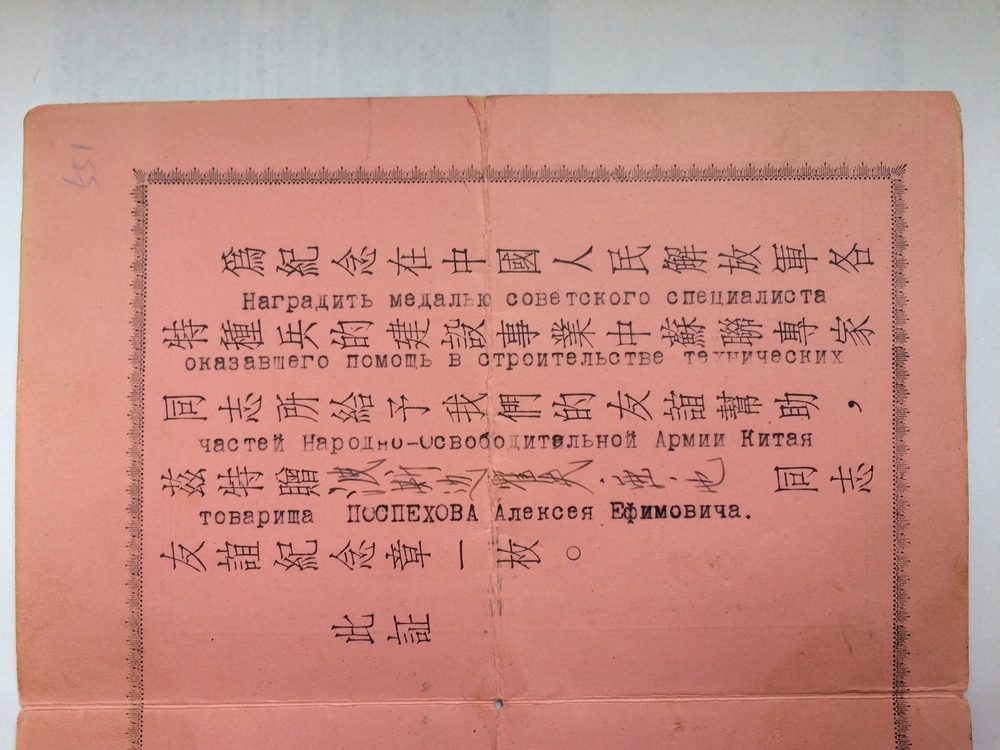 155
爲紀念在中國人民解放軍各
Наградить медалью советского специалиста
特種兵的建設事業中蘇聯專家
оказавшего помощь в строительстве технических
同志所給予我們的友誼幫助，
частей Народно-Освободительной Армии Китая
茲特贈 同志
товарища ПОСПЕХОВА Алексея Ефимовича.
友誼紀念章一枚。
此証